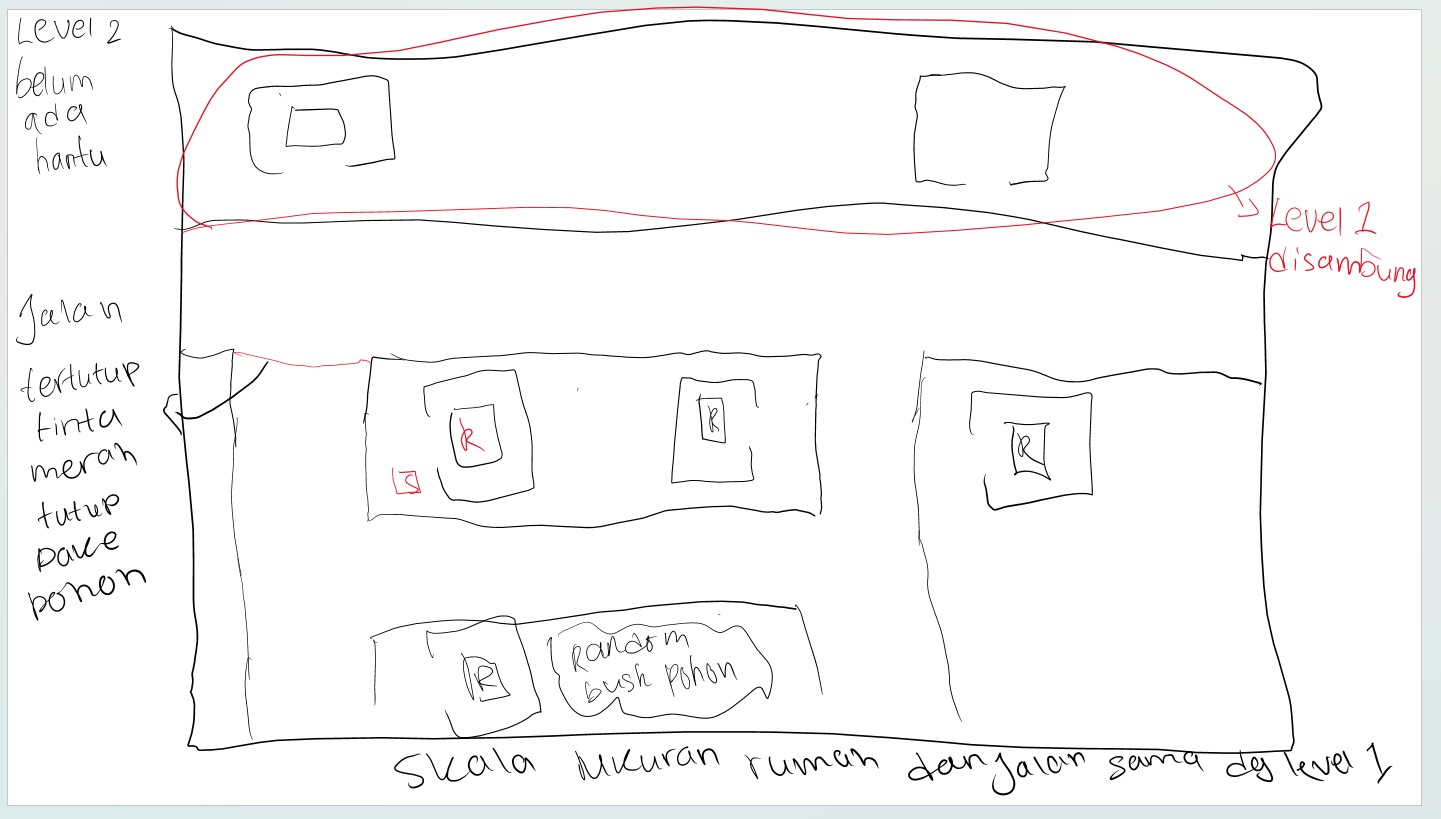 Level 2
belum
ada
hantu
Level 1
disambung
Jalan
tertutup
tinta
merah
tutup
pake
pohon
R
R
R
S
R
Random
bush pohon
Skala ukuran rumah dan jalan sama dg level 1